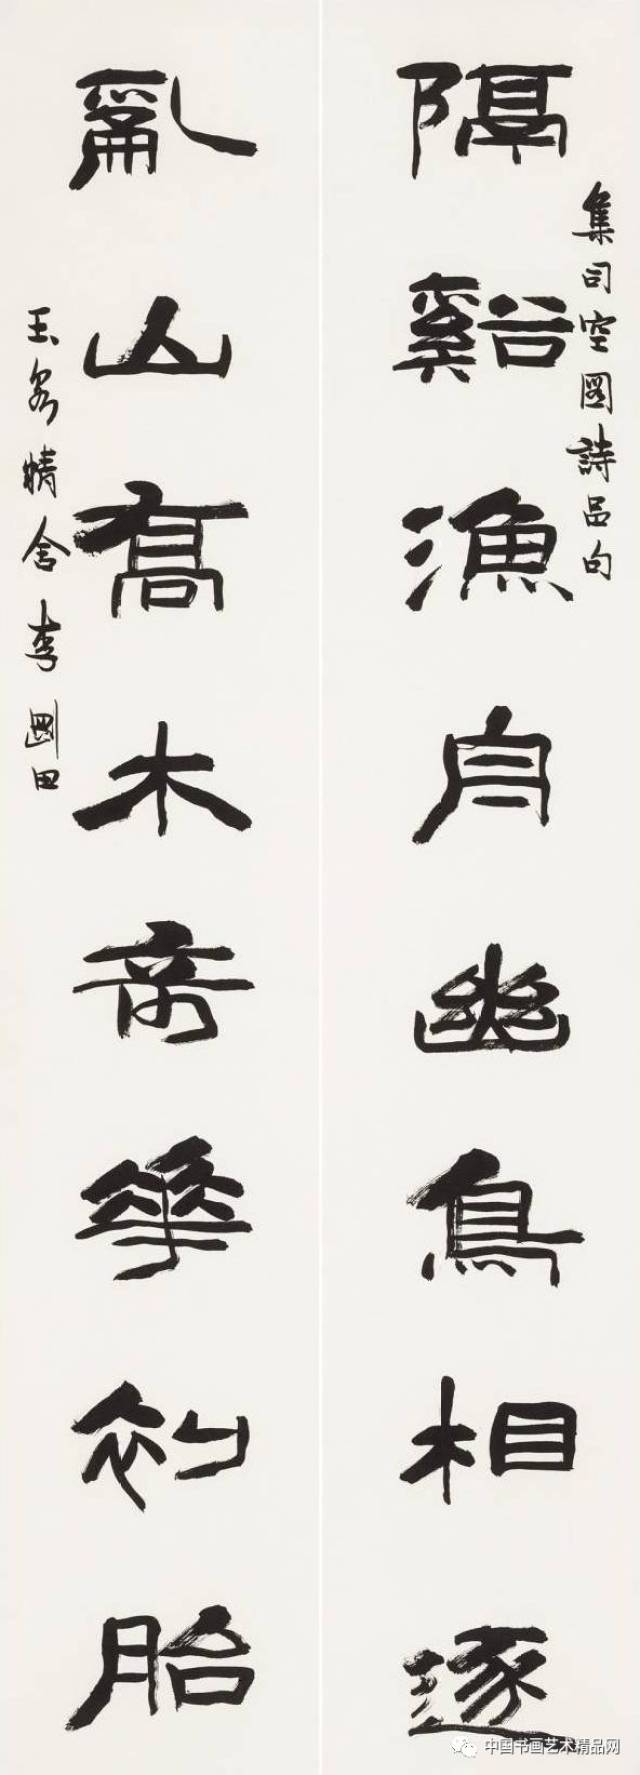 隔谿漁舟幽鳥相逐
集司空圖詩品句
亂山喬木奇華初胎
玉泉精舍李剛田
中国书画艺术精品网